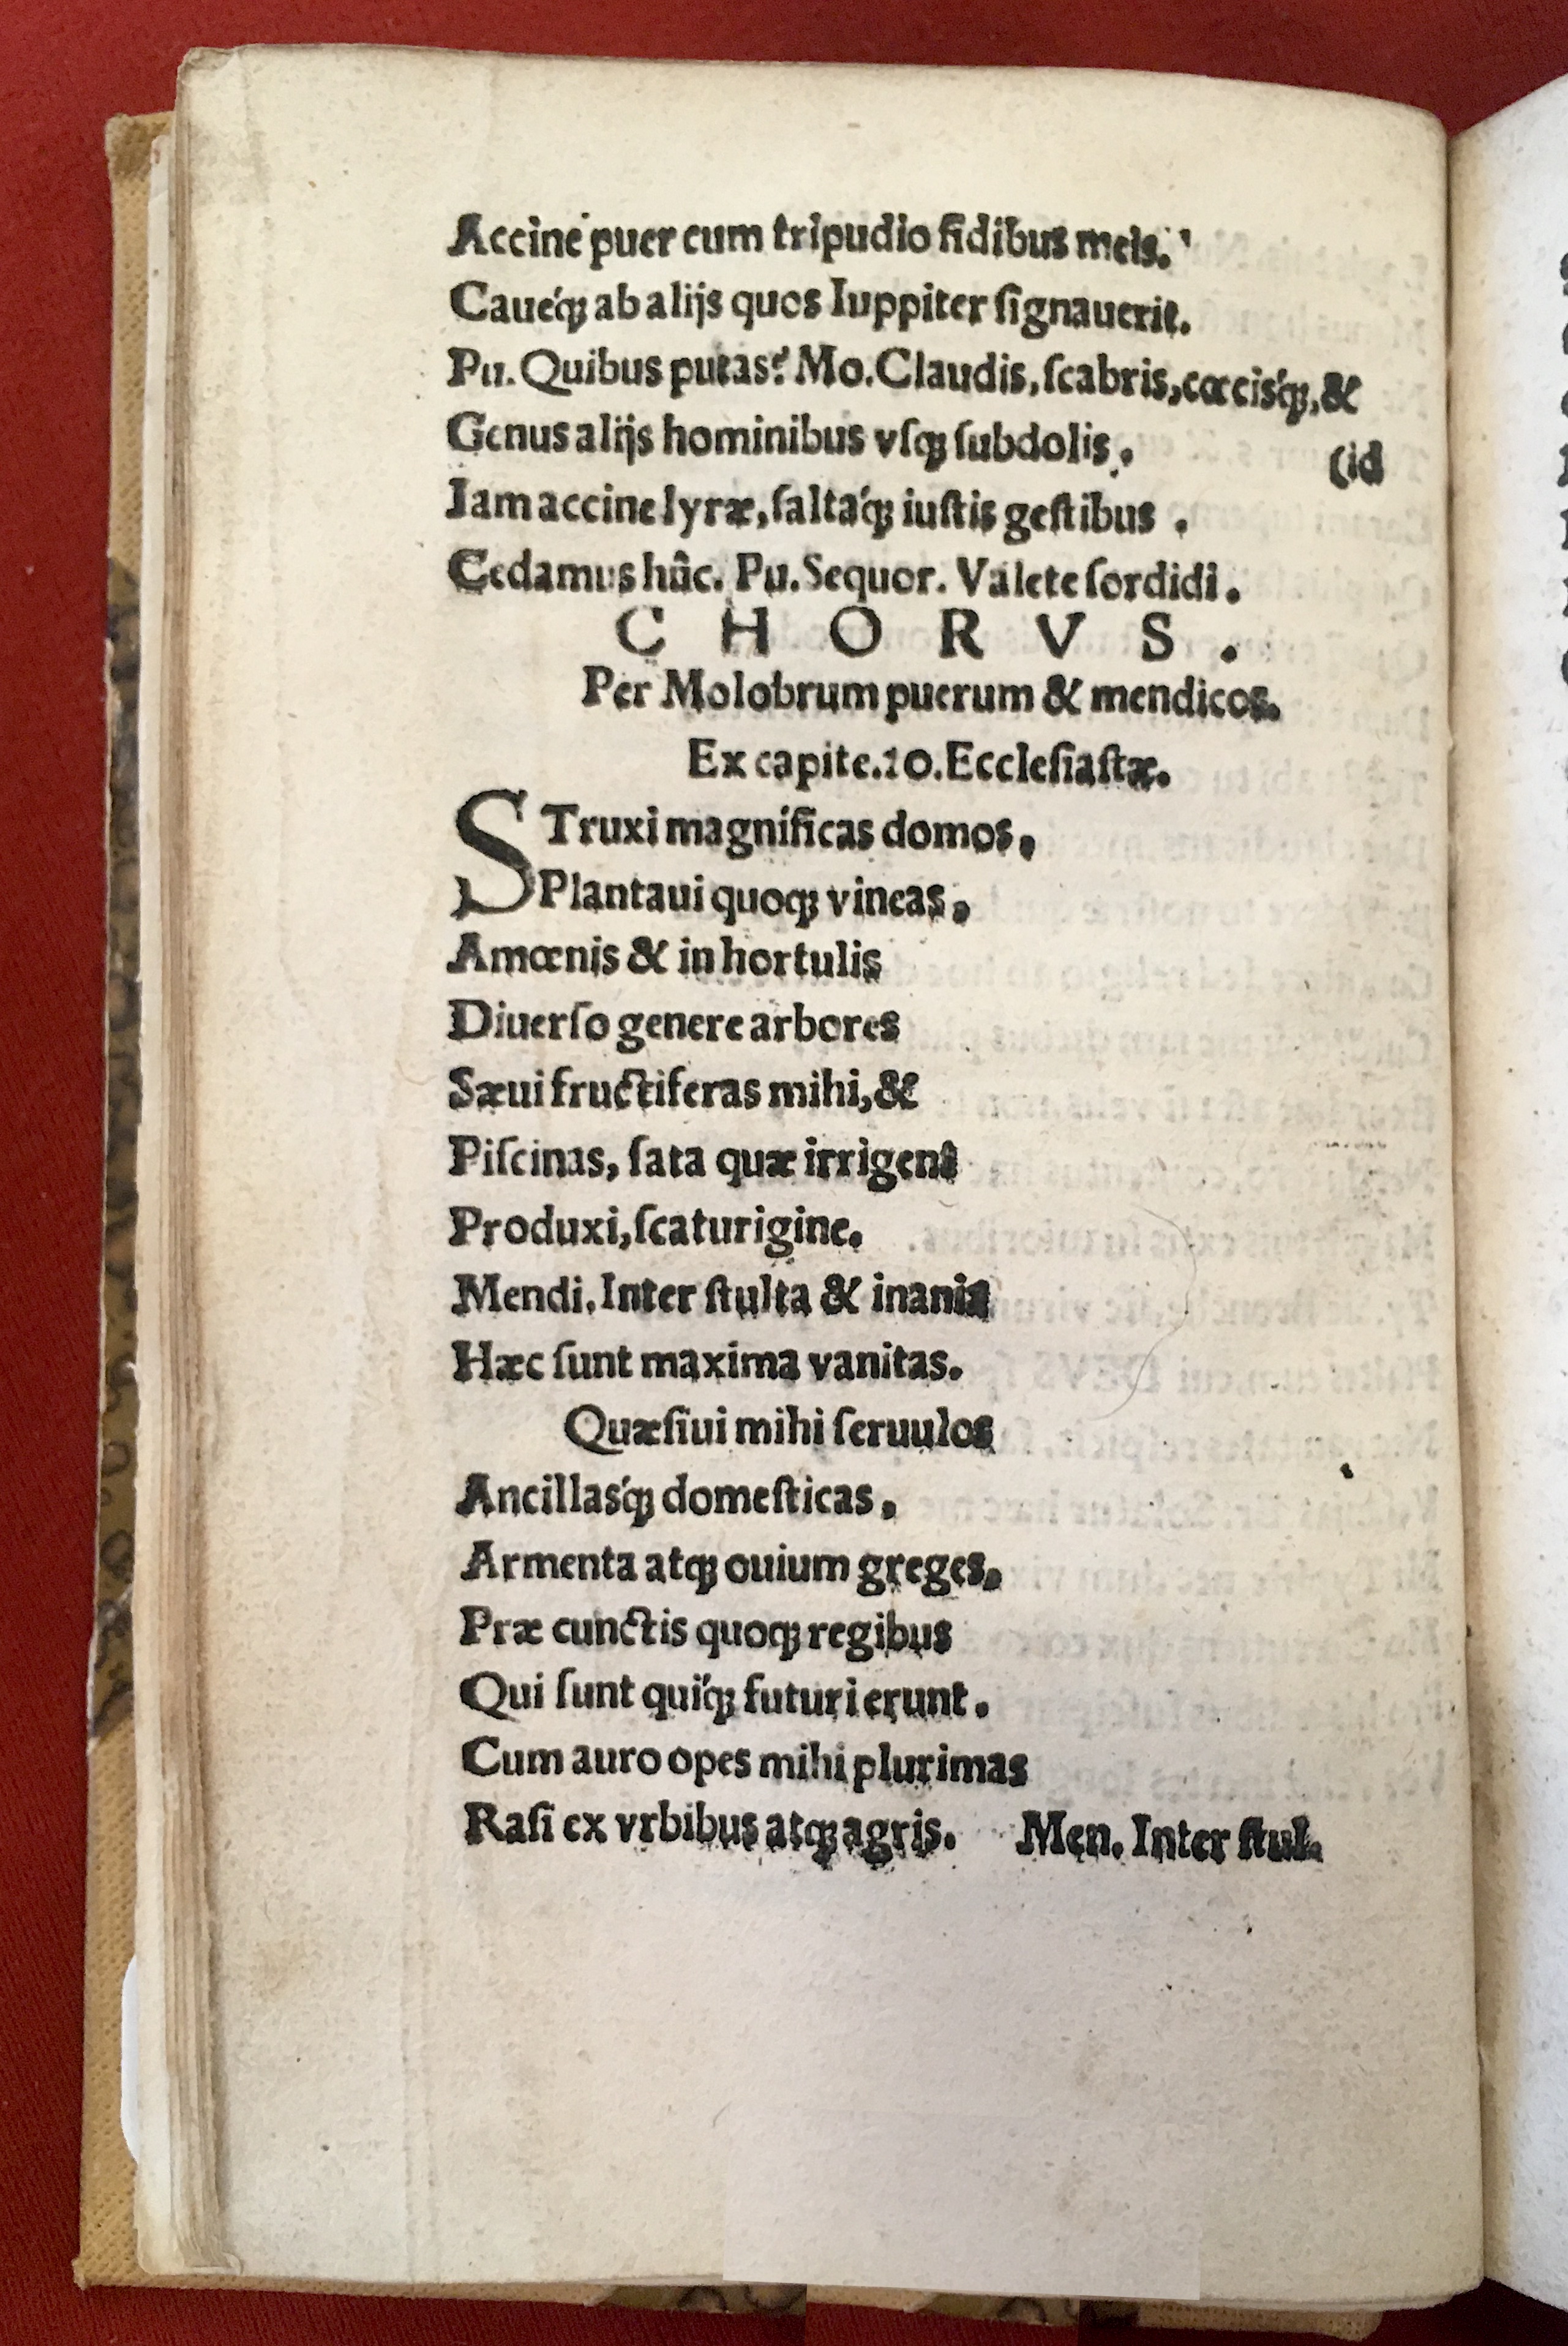 Accine puer cum tripudio fidibus meis.
Caueq́ꝫ ab alijs quos Iuppiter ſignauerit.
Pu. Quibus putas? Mo. Claudis, ſcabris, cœcisq́ꝫ, &
Genus alijs hominibus vſqꝫ ſubdolis. (id
Iam accine lyræ, ſaltaq́ꝫ iuſtis geſtibus.
Cedamus hûc. Pu. Sequor. Valete ſordidi.
C H O R V S .
Per Molobrum puerum & mendicos.
Ex capite. 10. Eccleſiaſtæ.
STruxi magnificas domos,
Plantaui quoqꝫ vineas,
Amœnis & in hortulis
Diuerſo genere arbores
Sæui fructiferas mihi, &
Piſcinas, ſata quæ irrigent
Produxi, ſcaturigine.
Mendi. Inter ſtulta & inania
Hæc ſunt maxima vanitas.
Quæſiui mihi ſeruulos
Ancillasq́ꝫ domeſticas,
Armenta atqꝫ ouium greges,
Præ cunctis quoqꝫ regibus
Qui ſunt quiq́ꝫ futuri erunt.
Cum auro opes mihi plurimas
Raſi ex vrbibus atqꝫ agris. Men. Inter ſtul.